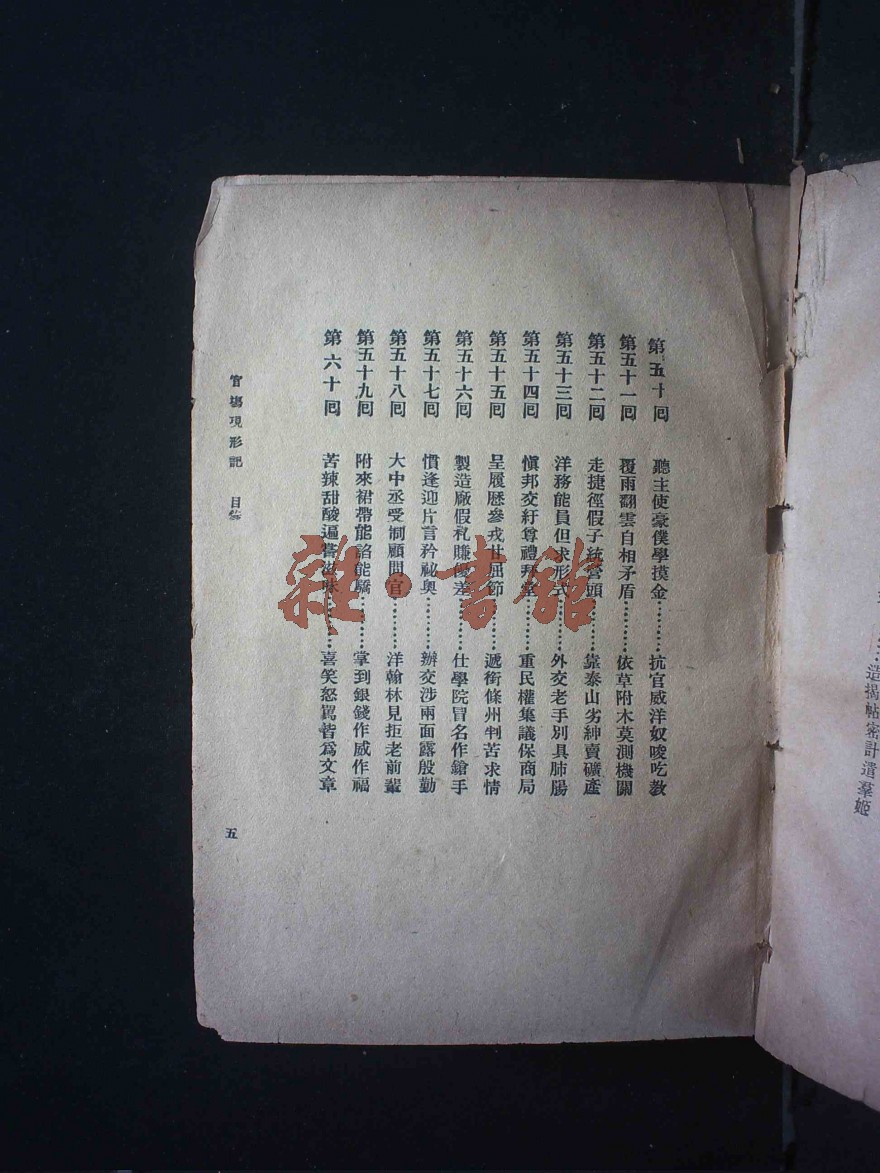 造揭帖密計遣羣姬
第五十回 聽主使豪僕學摸金………抗官威洋奴唆吃教
第五十一回 覆雨翻雲自相矛盾………依草附木莫測機關
第五十二回 走捷徑假子統營頭………靠泰山劣紳賣礦產
第五十三回 洋務能員但求形式………外交老手別具肺腸
第五十四回 愼邦交紆尊禮拜堂………重民權集議保商局
第五十五回 呈履歷參戎甘屈節………遞銜條州判苦求情
第五十六回 製造廠假札賺優差………仕學院冒名作鎗手
第五十七回 慣逢迎片言矜祕奧………辦交涉兩面露殷勤
第五十八回 大中丞受制顧問官………洋翰林見拒老前輩
第五十九回 附來裙帶能諂能驕………掌到銀錢作威作福
第六十回 苦辣甜酸遍嘗滋味………喜笑怒罵皆爲文章
官場現形記 目錄
五
雜·書館